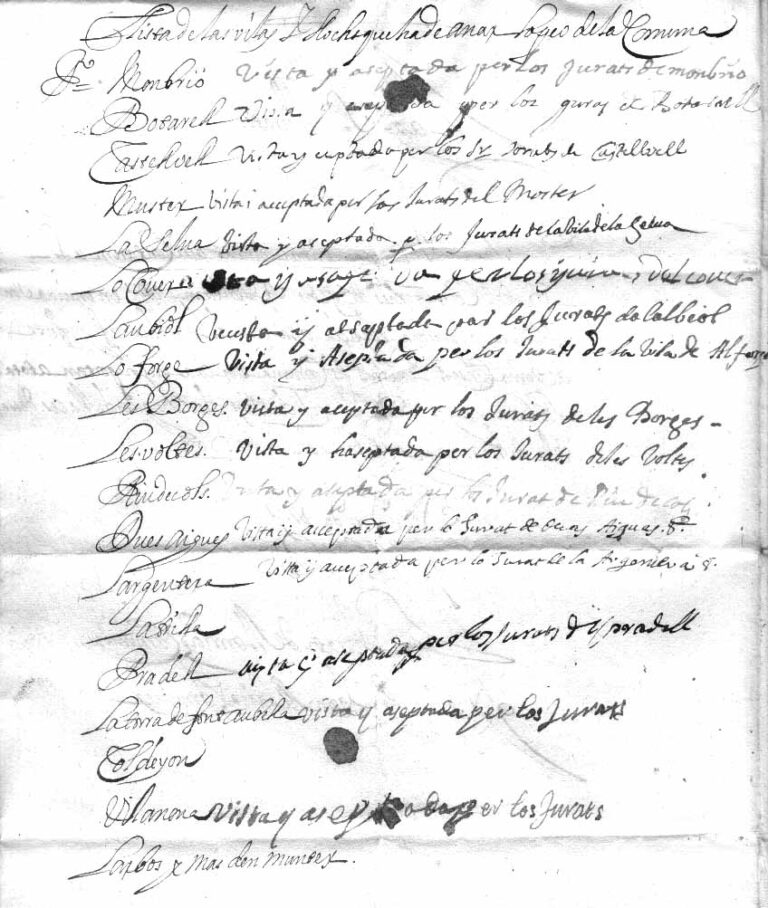 Llista de las vilas y llochs que ha de anar lo peo de la Comuna
Po Monbrio vista y aseptada per los Jurats de monbrio
Botarell vista y aseptada per los juras de Botarell
Castellvell vista y ceptada per los Sr Jurats de Castellvell
Muster vista i aceptada per los Jurats del Moster
La Selva vista y aseptada p los Jurats de la vila de la Selva
Lo Cover vista y asept per los del cover
Laubiol veusta y alseptada par los Jurats de lalbiol
Lo forge vista y Aseptada per los Jurats de la Vila de Alforge
Les Borges. vista y aceptada per los Jurats de les Borges -
Les voltes. vista y haseptada per los Jurats de les Voltes
Riudecols. vista y aseptada per lo Jurat de Riudecols
Dues Aigues vista y aceptada per lo Jurat de duas Aiguas. &.
Largentera vista y aceptada per lo Jurat de la Argentera &.
Pradell vista y aseptada per los Jurats de pradell
La torra de fontaubella vista y aseptada per los Jurats
Coldejou
Vilanova vista y aseptada per los Jurats
Larbos y Mas den Munter.